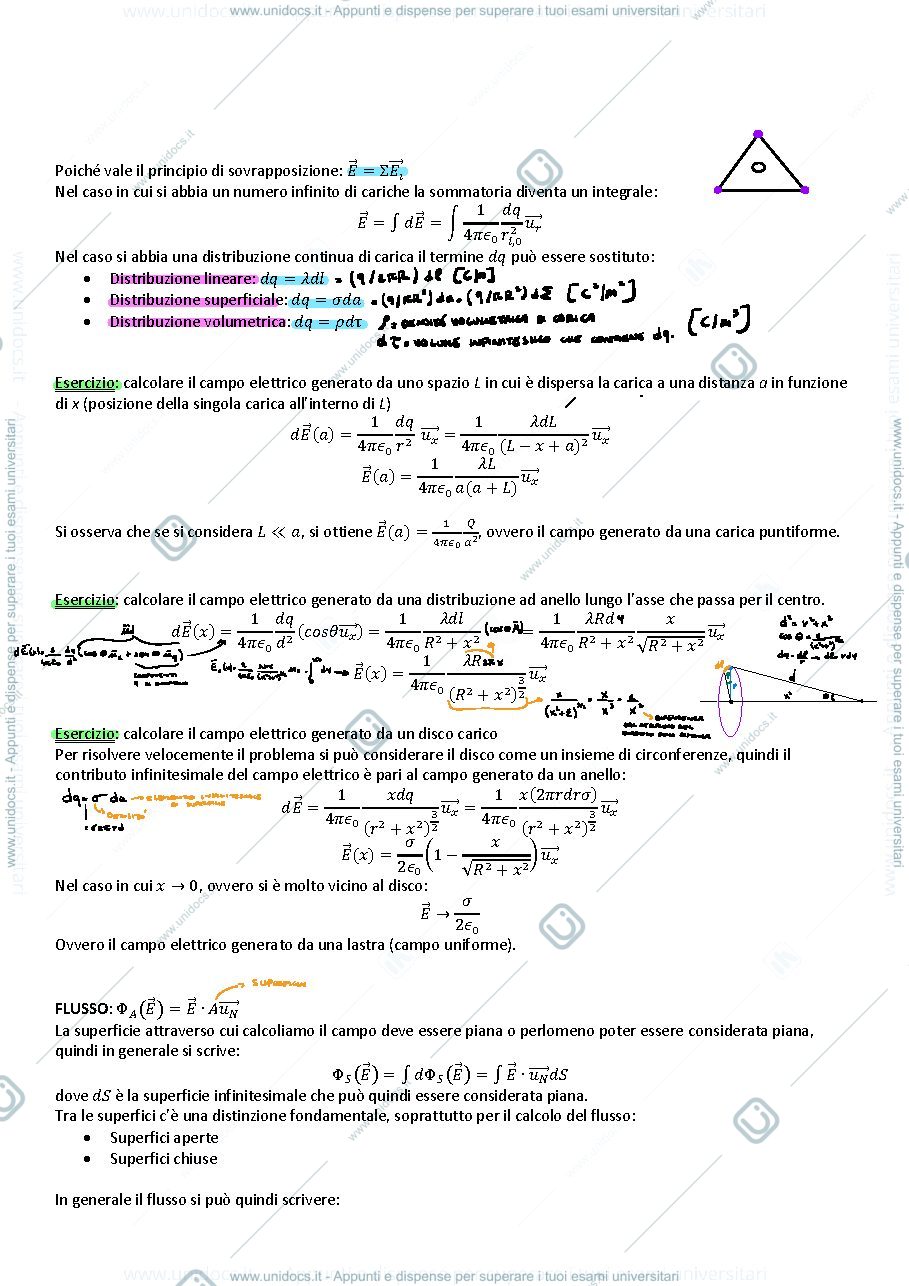 www.unidocs.it - Appunti e dispense per superare i tuoi esami universitari
Poiché vale il principio di sovrapposizione: $\vec{E} = \Sigma\vec{E_i}$
Nel caso in cui si abbia un numero infinito di cariche la sommatoria diventa un integrale:
$\vec{E} = \int d\vec{E} = \int \frac{1}{4\pi\epsilon_0}\frac{dq}{r_{i,0}^2}\vec{u_r}$
Nel caso si abbia una distribuzione continua di carica il termine $dq$ può essere sostituto:
• Distribuzione lineare: $dq = \lambda dl$ = (q/2πR) dl [C/m]
• Distribuzione superficiale: $dq = \sigma da$
• Distribuzione volumetrica: $dq = \rho d\tau$ ρ = DENSITÀ VOLUMETRICA DI CARICA [C/m³]
dτ = VOLUME INFINITESIMO CHE CONTIENE dq.
Esercizio: calcolare il campo elettrico generato da uno spazio L in cui è dispersa la carica a una distanza a in funzione
di x (posizione della singola carica all'interno di L)
$d\vec{E}(a) = \frac{1}{4\pi\epsilon_0}\frac{dq}{r^2}\vec{u_x} = \frac{1}{4\pi\epsilon_0}\frac{\lambda dL}{(L-x+a)^2}\vec{u_x}$
$\vec{E}(a) = \frac{1}{4\pi\epsilon_0}\frac{\lambda L}{a(a+L)}\vec{u_x}$
Si osserva che se si considera $L \ll a$, si ottiene $\vec{E}(a) = \frac{1}{4\pi\epsilon_0}\frac{Q}{a^2}$, ovvero il campo generato da una carica puntiforme.
Esercizio: calcolare il campo elettrico generato da una distribuzione ad anello lungo l'asse che passa per il centro.
$d\vec{E}(x) = \frac{1}{4\pi\epsilon_0}\frac{dq}{d^2}(cos\theta\vec{u_x}) = \frac{1}{4\pi\epsilon_0}\frac{\lambda dl}{R^2+x^2}$ (cosθ) $= \frac{1}{4\pi\epsilon_0}\frac{\lambda R d\varphi}{R^2+x^2}\frac{x}{\sqrt{R^2+x^2}}\vec{u_x}$
$\vec{E}(x) = \frac{1}{4\pi\epsilon_0}\frac{\lambda R 2\pi x}{(R^2+x^2)^{\frac{3}{2}}}\vec{u_x}$
Esercizio: calcolare il campo elettrico generato da un disco carico
Per risolvere velocemente il problema si può considerare il disco come un insieme di circonferenze, quindi il
contributo infinitesimale del campo elettrico è pari al campo generato da un anello:
dq = σ da
$d\vec{E} = \frac{1}{4\pi\epsilon_0}\frac{xdq}{(r^2+x^2)^{\frac{3}{2}}}\vec{u_x} = \frac{1}{4\pi\epsilon_0}\frac{x(2\pi rdr\sigma)}{(r^2+x^2)^{\frac{3}{2}}}\vec{u_x}$
$\vec{E}(x) = \frac{\sigma}{2\epsilon_0}\left(1 - \frac{x}{\sqrt{R^2+x^2}}\right)\vec{u_x}$
Nel caso in cui $x \to 0$, ovvero si è molto vicino al disco:
$\vec{E} \to \frac{\sigma}{2\epsilon_0}$
Ovvero il campo elettrico generato da una lastra (campo uniforme).
SUPERFICIE
FLUSSO: $\Phi_A(\vec{E}) = \vec{E} \cdot A\vec{u_N}$
La superficie attraverso cui calcoliamo il campo deve essere piana o perlomeno poter essere considerata piana,
quindi in generale si scrive:
$\Phi_S(\vec{E}) = \int d\Phi_S(\vec{E}) = \int \vec{E} \cdot \vec{u_N}dS$
dove $dS$ è la superficie infinitesimale che può quindi essere considerata piana.
Tra le superfici c'è una distinzione fondamentale, soprattutto per il calcolo del flusso:
• Superfici aperte
• Superfici chiuse
In generale il flusso si può quindi scrivere:
www.unidocs.it - Appunti e dispense per superare i tuoi esami universitari